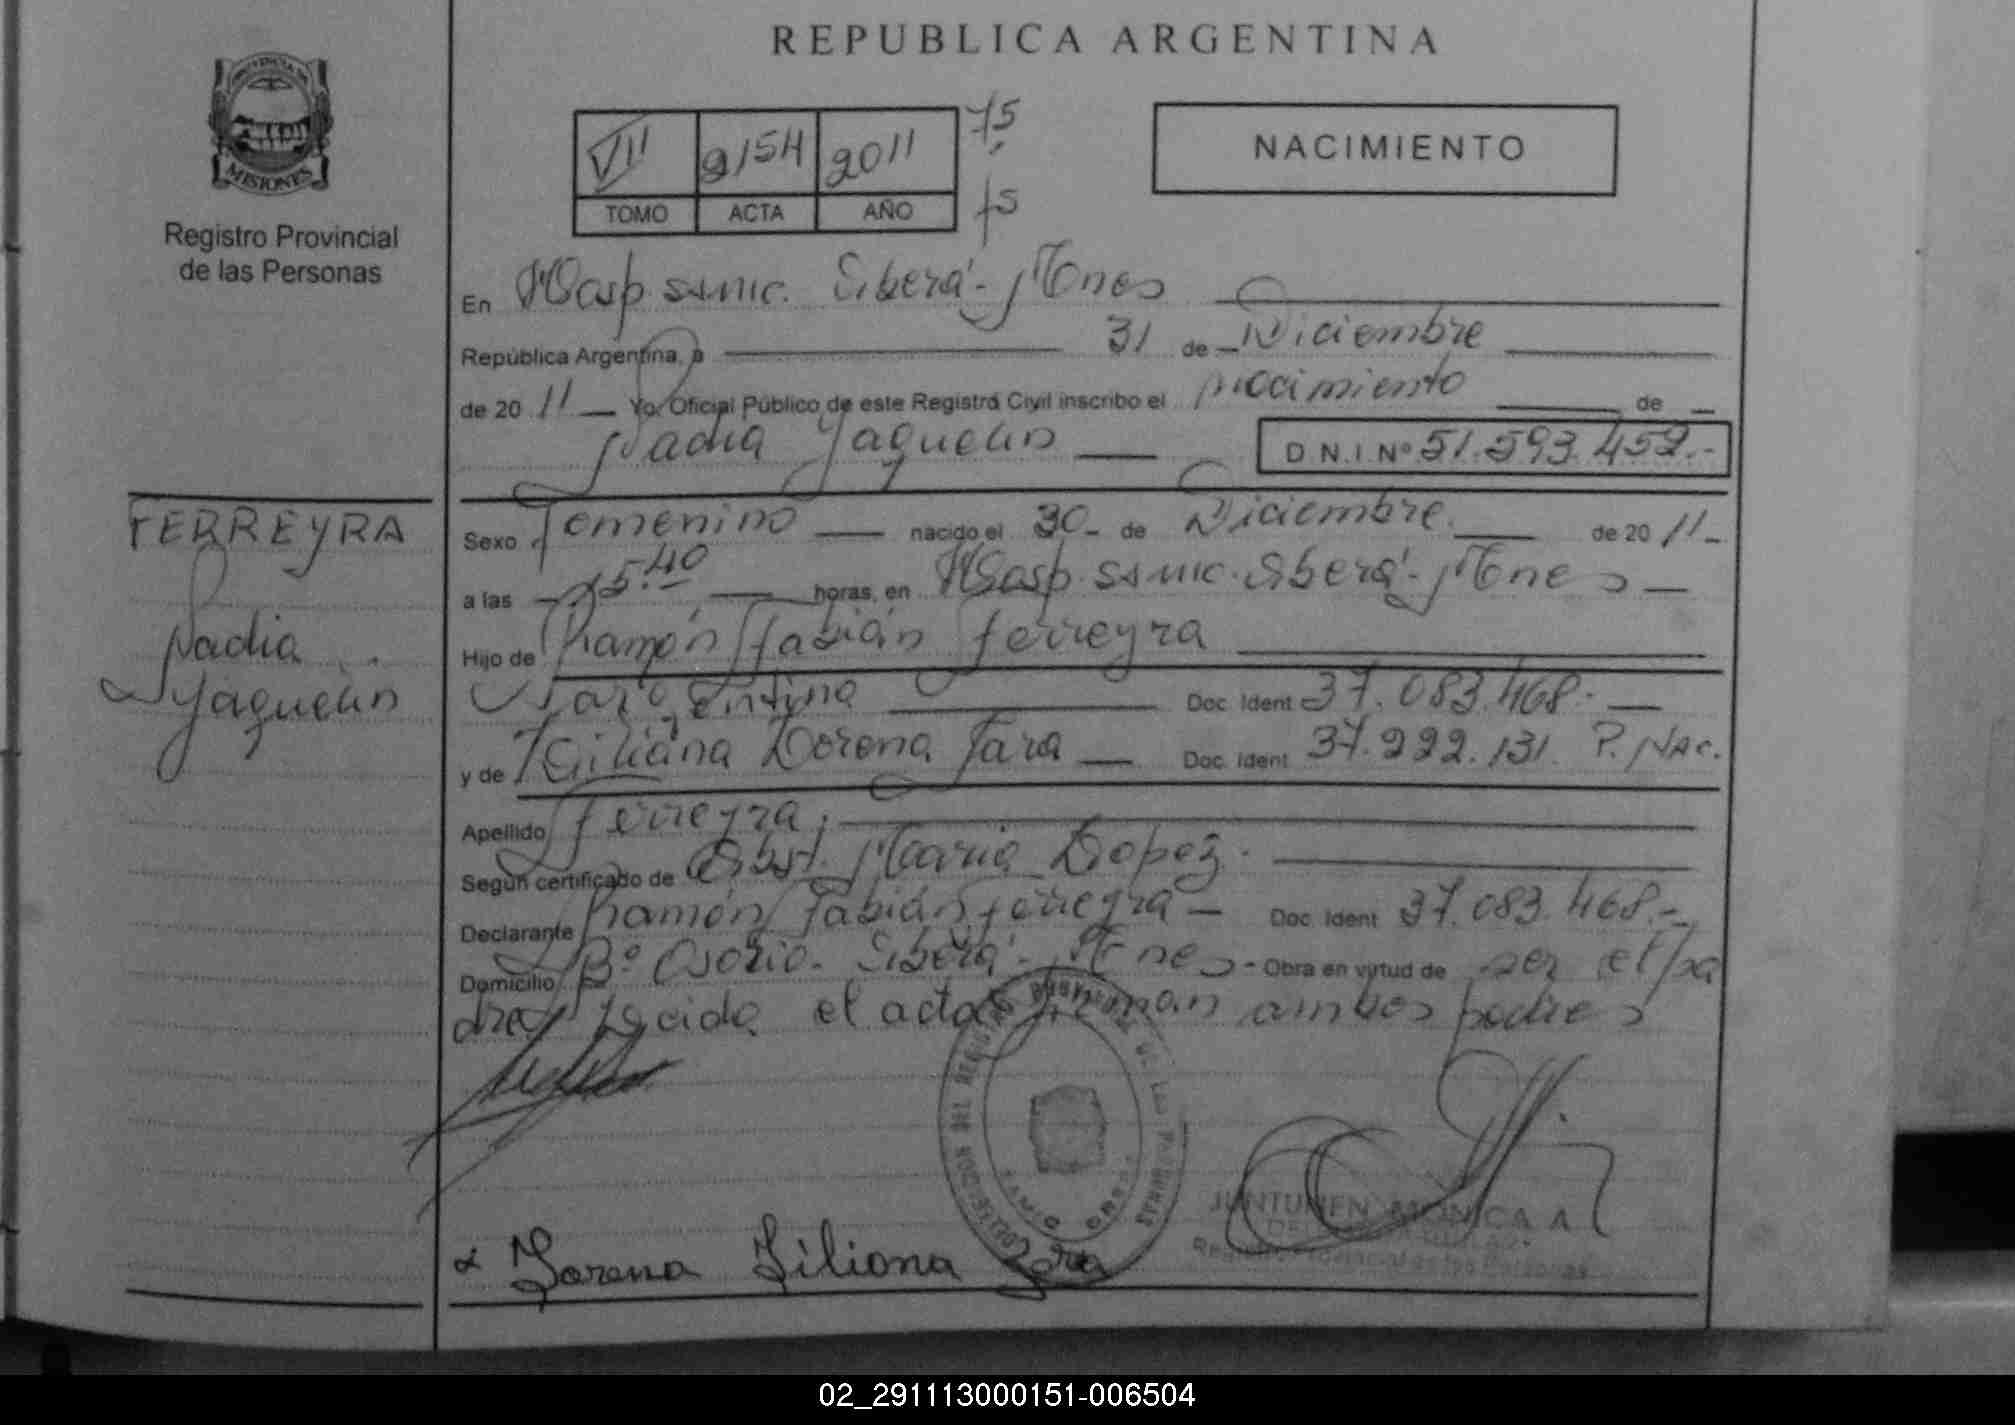 REPUBLICA ARGENTINA
PROVINCIA DE
MISIONES
Registro Provincial
de las Personas
VII 2154 2011
TOMO ACTA AÑO
f5
f5
NACIMIENTO
En Hosp. SSMIC. Eiberá - Mnes
República Argentina, a 31 de Diciembre
de 20 11 Yo, Oficial Público de este Registro Civil inscribo el nacimiento de
Nadia Yaquelin
D.N.I. Nº 51.593.452.-
FERREYRA
Nadia
Yaquelin
Sexo Femenino nacido el 30 - de Diciembre de 20 11 -
a las 15.40 horas, en Hosp. SSMIC. Eiberá - Mnes
Hijo de Ramón Fabián Ferreyra
Argentino Doc. Ident 37.083.468.-
y de Liliana Lorena Jara Doc. Ident 37.222.131. P. Nac.
Apellido Ferreyra.
Según certificado de Obst. Maria Lopez.
Declarante Ramón Fabián Ferreyra - Doc. Ident 37.083.468.-
Domicilio Bº Osorio. Eiberá - Mnes - Obra en virtud de ser el pa
dre, Leida el acta firman ambos padres
Lorena Liliana Jara
JUNTUNEN MONICA A.
Registro Provincial de las Personas
02_291113000151-006504